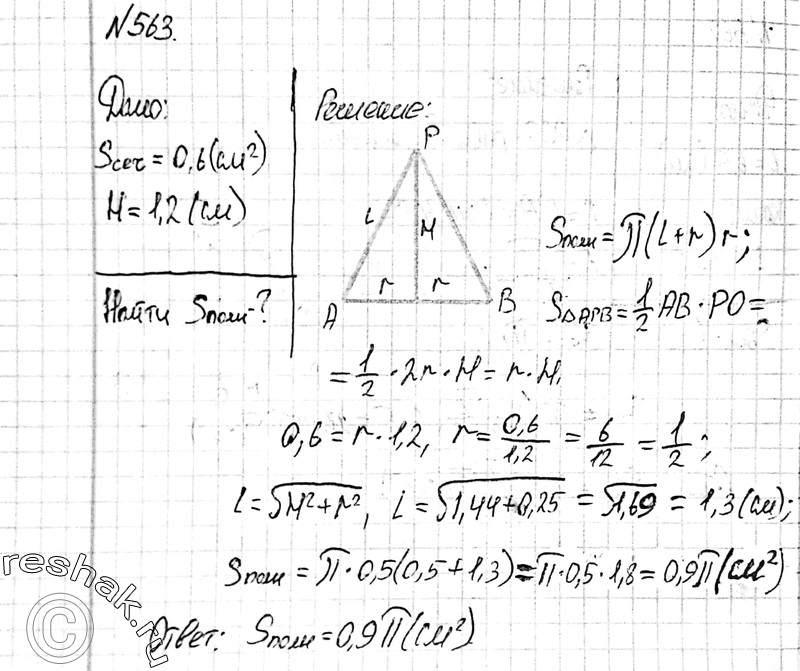 N563.
Дано:
Sсеч = 0,6 (см²)
H = 1,2 (см)
Найти Sполн - ?
Решение:
P
L
H
r r
A B
Sполн = π(L+r)r;
S△APB = 1/2 AB · PO =
= 1/2 · 2r · H = r · H.
0,6 = r · 1,2, r = 0,6/1,2 = 6/12 = 1/2;
L = √(H²+r²), L = √(1,44+0,25) = √1,69 = 1,3 (см);
Sполн = π · 0,5(0,5+1,3) = π · 0,5 · 1,8 = 0,9π (см²)
Ответ: Sполн = 0,9π (см²)
©reshak.ru